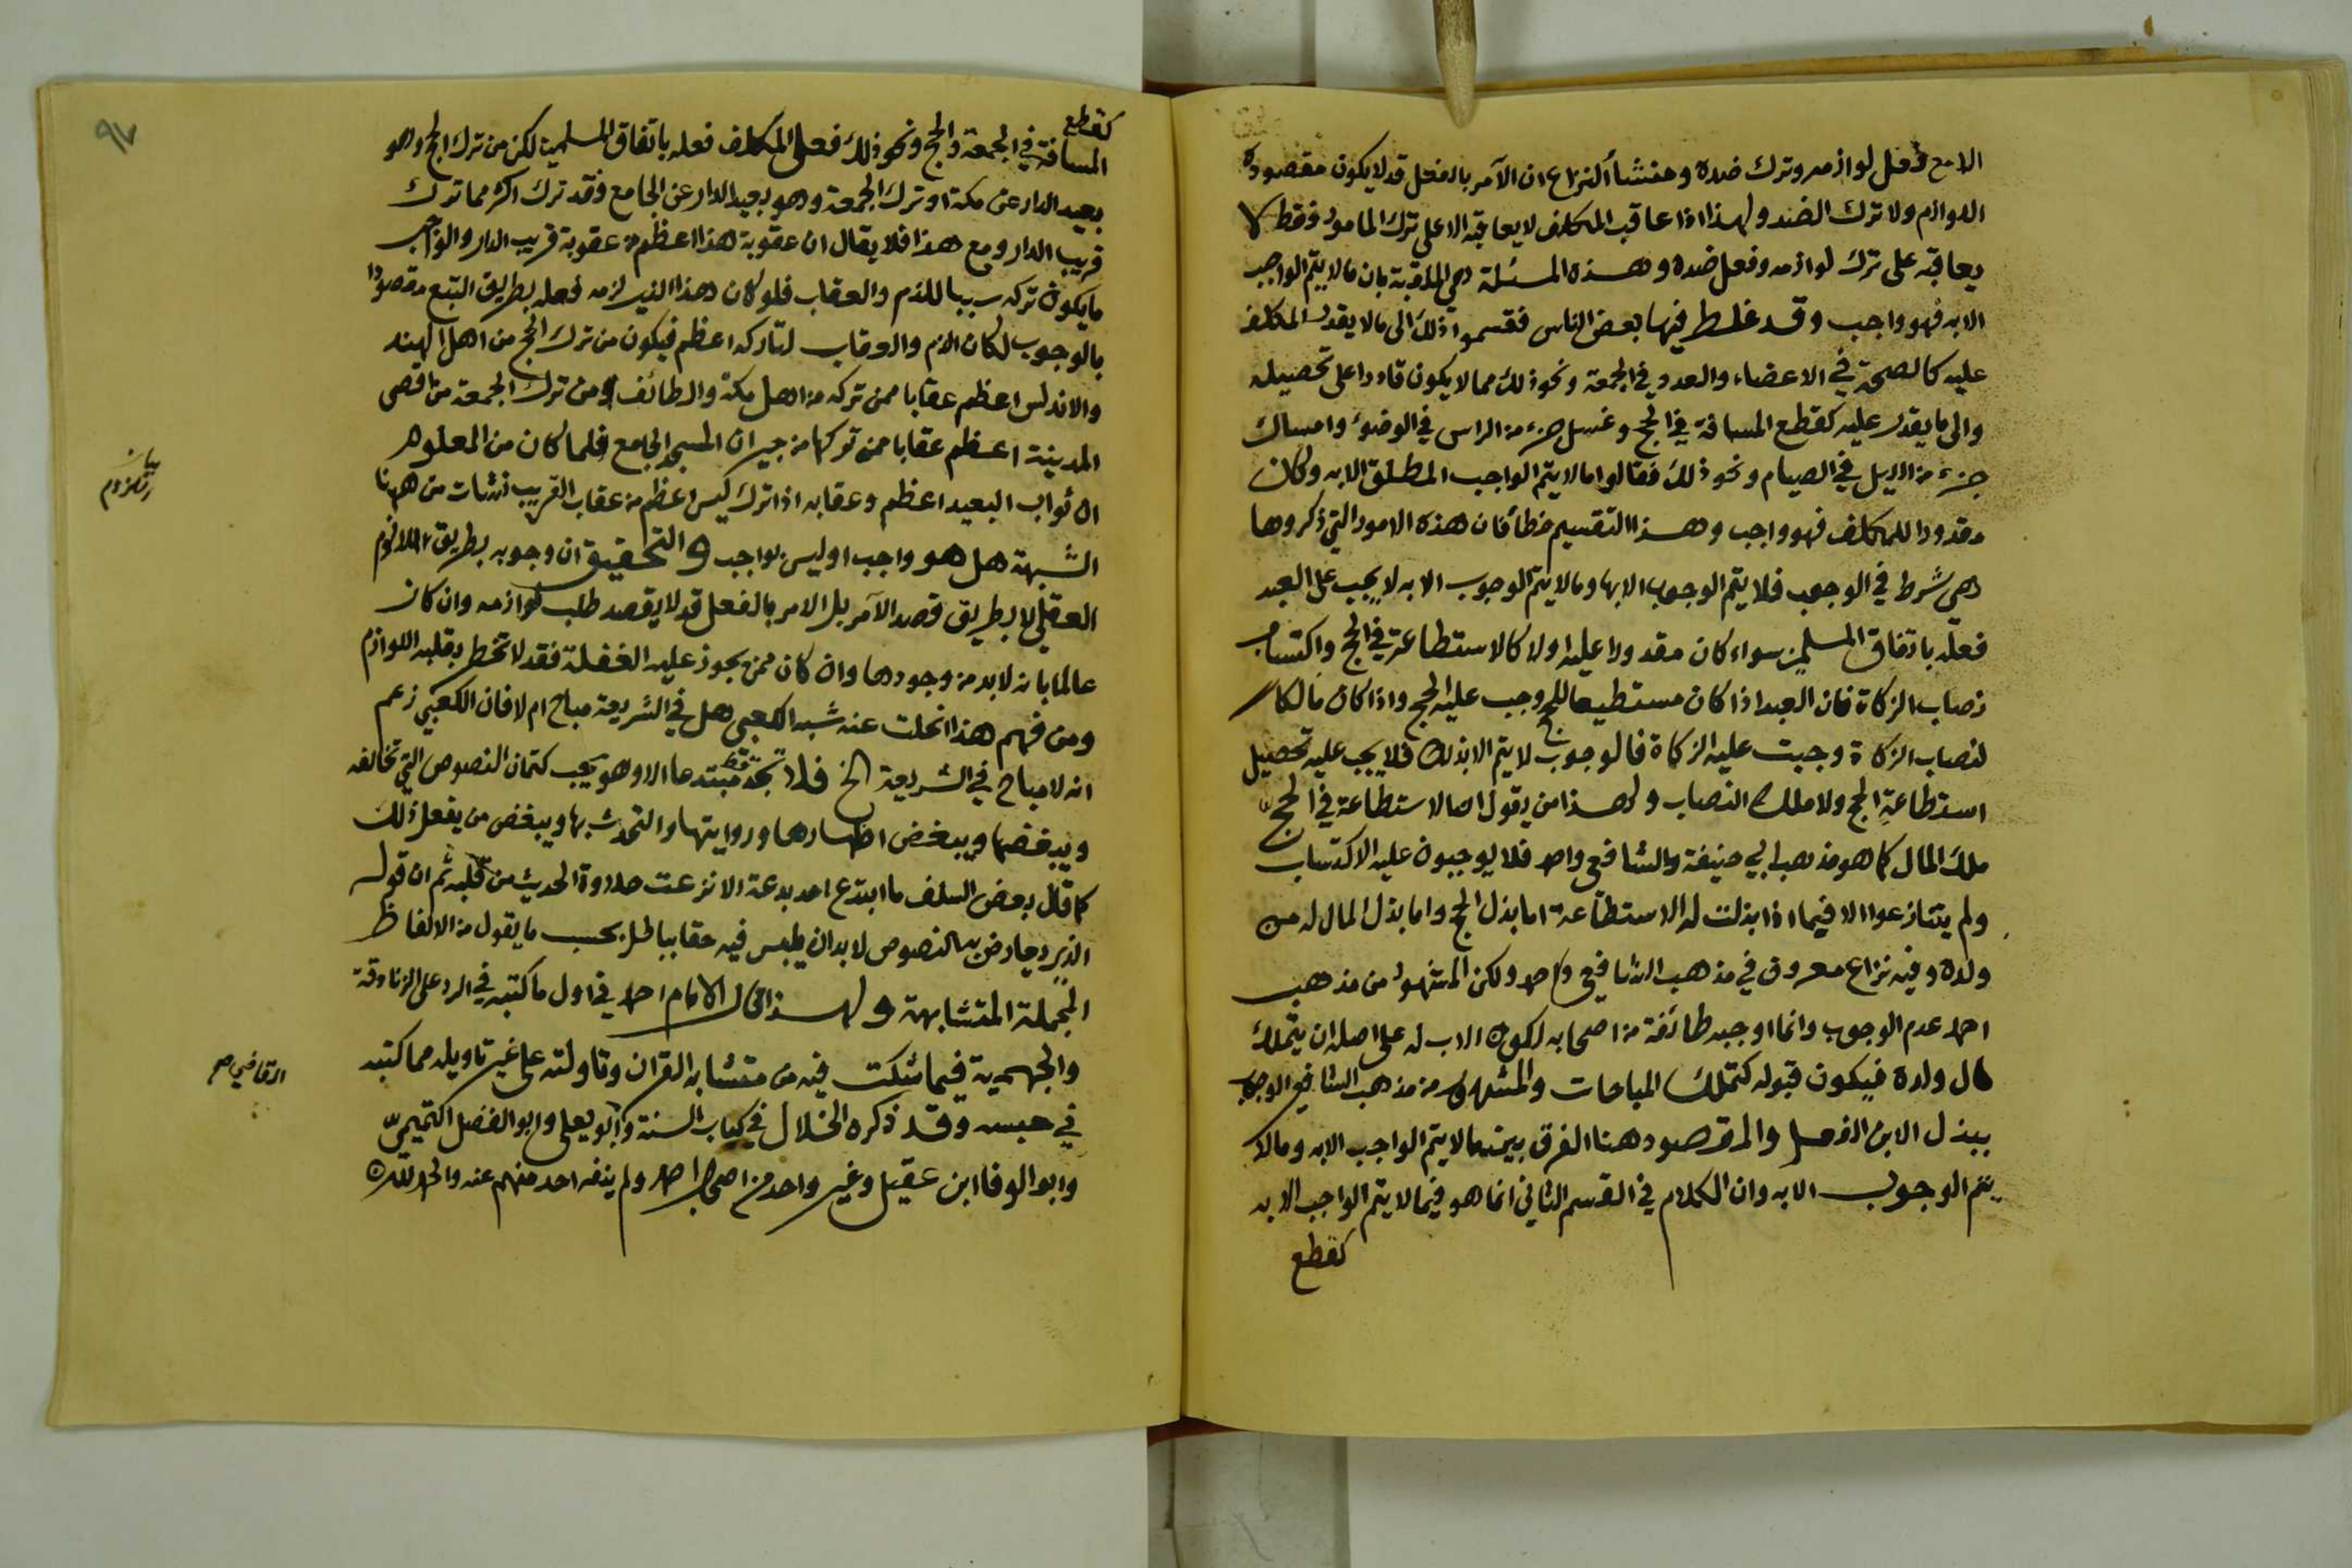 الامع فعل لوازمه وترك ضده ومنشأ النزاع ان الآمر بالفعل قد لا يكون مقصوده
اللوازم ولا ترك الضد ولهذا اذا عاقب المكلف لا يعاقبه الا على ترك المامور فقط لا
يعاقبه على ترك لوازمه وفعل ضده وهذه المسئلة هي الملقبة بان ما لا يتم الواجب
الا به فهو واجب وقد غلط فيها بعض الناس فقسموا ذلك الى ما لا يقدر المكلف
عليه كالصحة في الاعضاء والعدد في الجمعة ونحو ذلك مما لا يكون قادرا على تحصيله
والى ما يقدر عليه كقطع المسافة في الحج وغسل جزء من الراس في الوضوء وامساك
جزء من الليل في الصيام ونحو ذلك فقالوا ما لا يتم الواجب المطلق الا به وكان
مقدورا للمكلف فهو واجب وهذا التقسيم خطأ فان هذه الامور التي ذكروها
هي شرط في الوجوب فلا يتم الوجوب الا بها وما لا يتم الوجوب الا به لا يجب على العبد
فعله باتفاق المسلمين سواء كان مقدورا عليه اولا كالاستطاعة في الحج واكتساب
نصاب الزكاة فان العبد اذا كان مستطيعا للحج وجب عليه الحج واذا كان مالكا
لنصاب الزكاة وجبت عليه الزكاة فالوجوب لا يتم الا بذلك فلا يجب عليه تحصيل
استطاعة الحج ولا ملك النصاب ولهذا من يقول ان الاستطاعة في الحج
ملك المال كما هو مذهب ابي حنيفة والشافعي واحمد فلا يوجبون عليه الاكتساب
ولم يتنازعوا الا فيما اذا بذلت له الاستطاعة اما بذل الحج واما بذل المال له من
ولده وفيه نزاع معروف في مذهب الشافعي واحمد ولكن المشهور من مذهب
احمد عدم الوجوب وانما اوجبه طائفة من اصحابه لكون الاب له على اصله ان يتملك
مال ولده فيكون قبوله كتملك المباحات والمشهور من مذهب الشافعي الوجوب
ببذل الابن الفعل والمقصود هنا الفرق بين ما لا يتم الواجب الا به وما لا
يتم الوجوب الا به وان الكلام في القسم الثاني انما هو فيما لا يتم الواجب الا به
كقطع
٩٧
كقطع
المسافة في الجمعة والحج ونحو ذلك فعلى المكلف فعله باتفاق المسلمين لكن من ترك الحج وهو
بعيد الدار عن مكة او ترك الجمعة وهو بعيد الدار عن الجامع فقد ترك اكثر مما ترك
قريب الدار ومع هذا فلا يقال ان عقوبة هذا اعظم من عقوبة قريب الدار والواجب
ما يكون تركه سببا للذم والعقاب فلو كان هذا الذي لزمه فعله بطريق التبع مقصودا
بالوجوب لكان الذم والعقاب لتاركه اعظم فيكون من ترك الحج من اهل الهند
والاندلس اعظم عقابا ممن تركه من اهل مكة والطائف ومن ترك الجمعة من اقصى
المدينة اعظم عقابا ممن تركها من جيران المسجد الجامع فلما كان من المعلوم
ان ثواب البعيد اعظم وعقابه اذا ترك ليس اعظم من عقاب القريب نشات من ههنا
الشبهة هل هو واجب او ليس بواجب والتحقيق ان وجوبه بطريق اللازم
العقلي لا بطريق قصد الآمر بل الامر بالفعل قد لا يقصد طلب لوازمه وان كان
عالما بانه لا بد من وجودها وان كان ممن يجوز عليه الغفلة فقد لا تخطر بقلبه اللوازم
ومن فهم هذا انحلت عنه شبه الكعبي هل في الشريعة مباح ام لا فان الكعبي زعم
انه لا مباح في الشريعة الخ فلا تجد قط مبتدعا الا وهو يحب كتمان النصوص التي تخالفه
ويبغضها ويبغض اظهارها وروايتها والتحدث بها ويبغض من يفعل ذلك
كما قال بعض السلف ما ابتدع احد بدعة الا نزعت حلاوة الحديث من قلبه ثم ان قوله
الذي يعارض به النصوص لا بد ان يلبس فيه حقا بباطل بحسب ما يقول من الالفاظ
المجملة المتشابهة ولهذا قال الامام احمد في اول ما كتبه في الرد على الزنادقة
والجهمية فيما شكت فيه من متشابه القران وتاولته على غير تاويله مما كتبه
في حبسه وقد ذكره الخلال في كتاب السنة وابو يعلى وابو الفضل التميمي
وابو الوفا ابن عقيل وغير واحد من اصحاب احمد ولم ينفه احد منهم عنه والحمد لله
القاضي صح